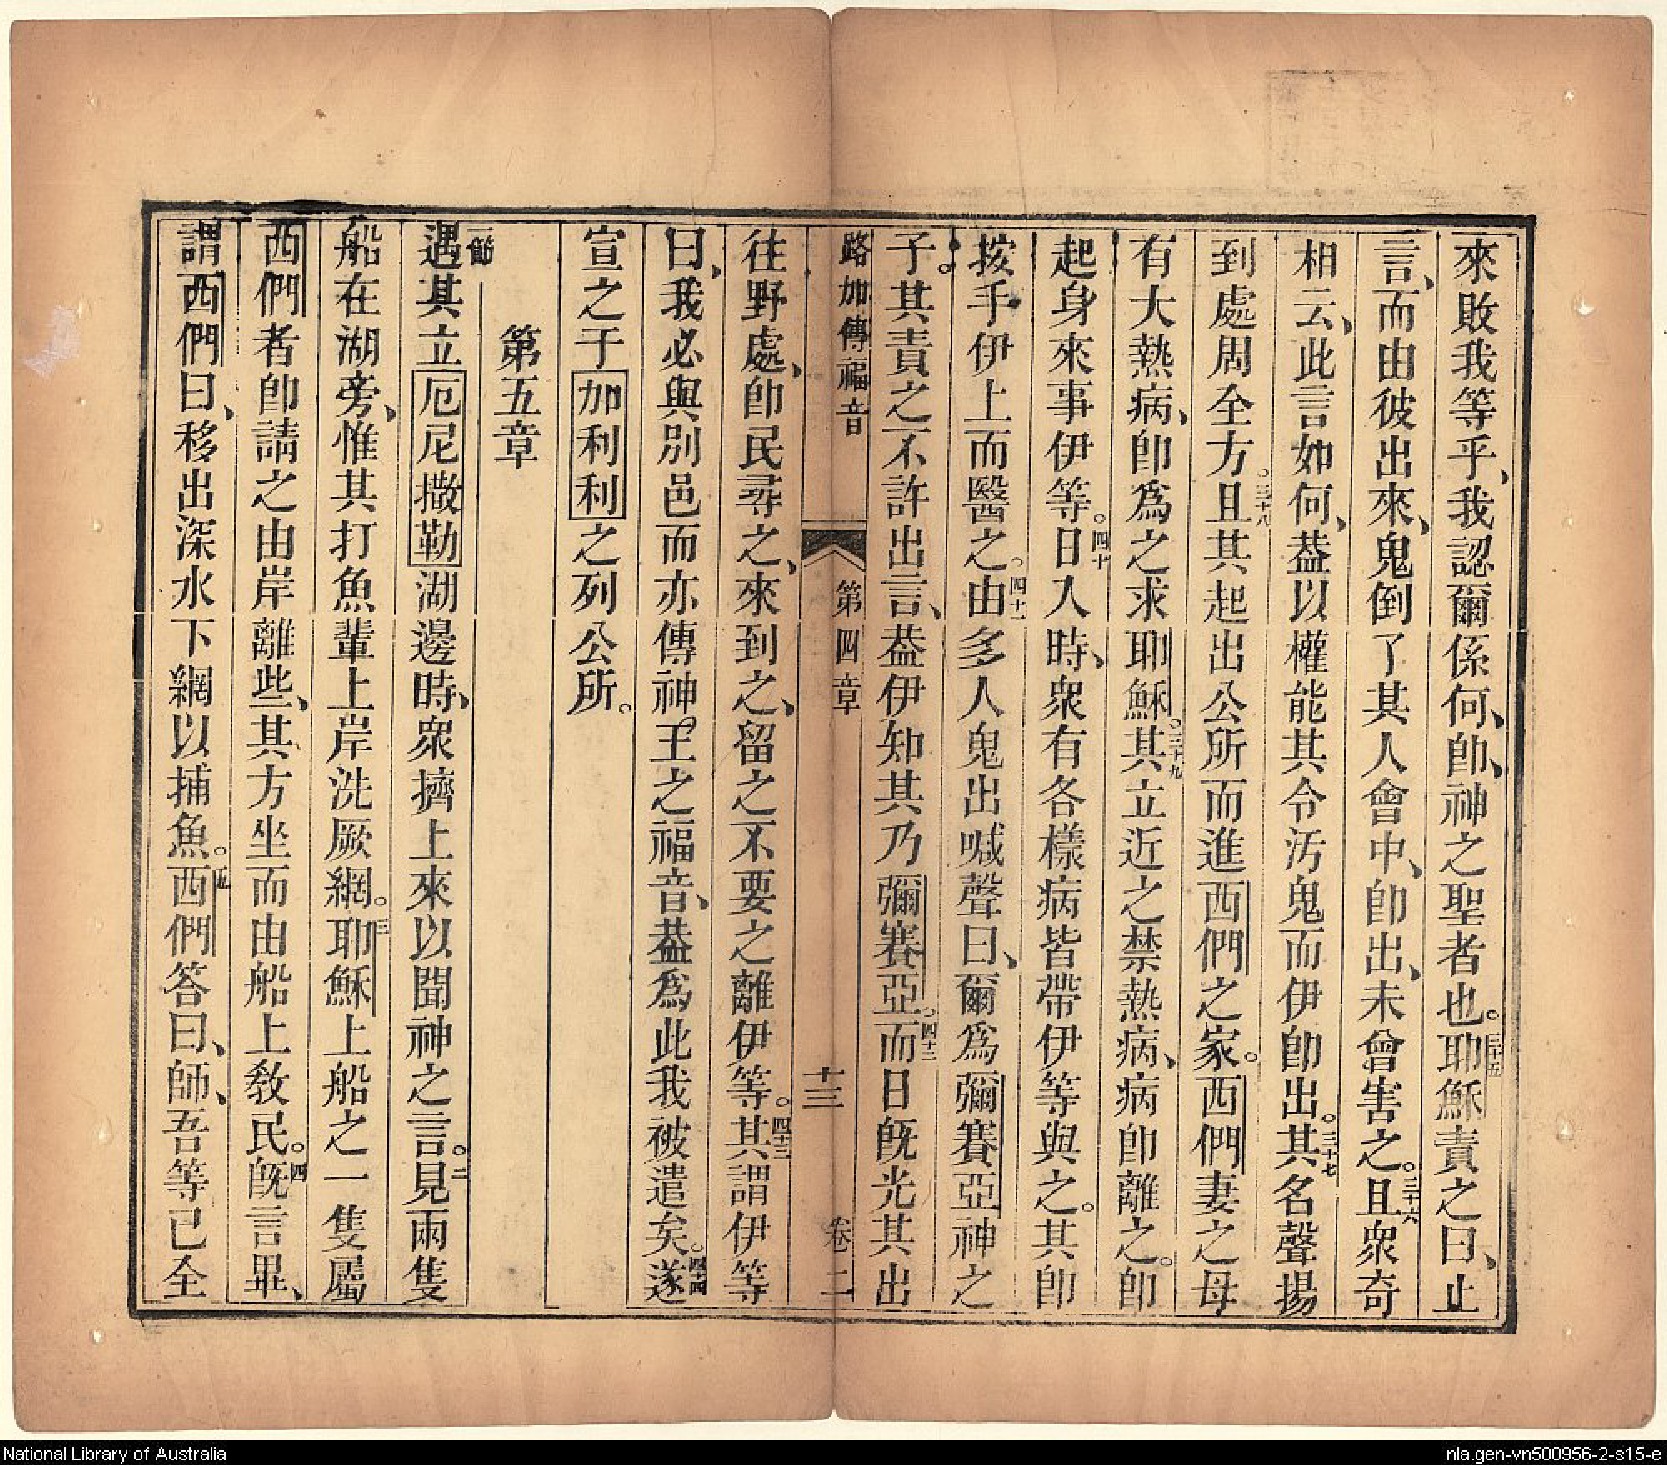 來敗我等乎、我認爾係何、卽、神之聖者也。三十五耶穌責之曰、止
言、而由彼出來、鬼倒了其人會中、卽出、未曾害之。三十六且衆奇
相云、此言如何、葢以權能其令汚鬼而伊卽出。三十七其名聲揚
到處周全方。三十八且其起出公所而進西們之家。西們妻之母
有大熱病、卽爲之求耶穌。三十九其立近之禁熱病、病卽離之。卽
起身來事伊等。四十日入時、衆有各樣病皆帶伊等與之。其卽
按手伊上而醫之。四十一由多人鬼出喊聲曰、爾爲彌賽亞神之
子。其責之不許出言、葢伊知其乃彌賽亞。四十二而日旣光其出
路加傳福音 第四章 十三 卷二
往野處、卽民尋之、來到之、留之不要之離伊等。四十三其謂伊等
曰、我必與別邑而亦傳神王之福音、葢爲此我被遣矣。四十四遂
宣之于加利利之列公所。
第五章
一節遇其立厄尼撒勒湖邊時、衆擠上來以聞神之言。二見兩隻
船在湖旁、惟其打魚輩上岸洗厥網。三耶穌上船之一隻屬
西們者卽請之由岸離些、其方坐而由船上敎民。四旣言畢、
謂西們曰、移出深水下網以捕魚。五西們答曰、師、吾等已全
National Library of Australia
nla.gen-vn500956-2-s15-e